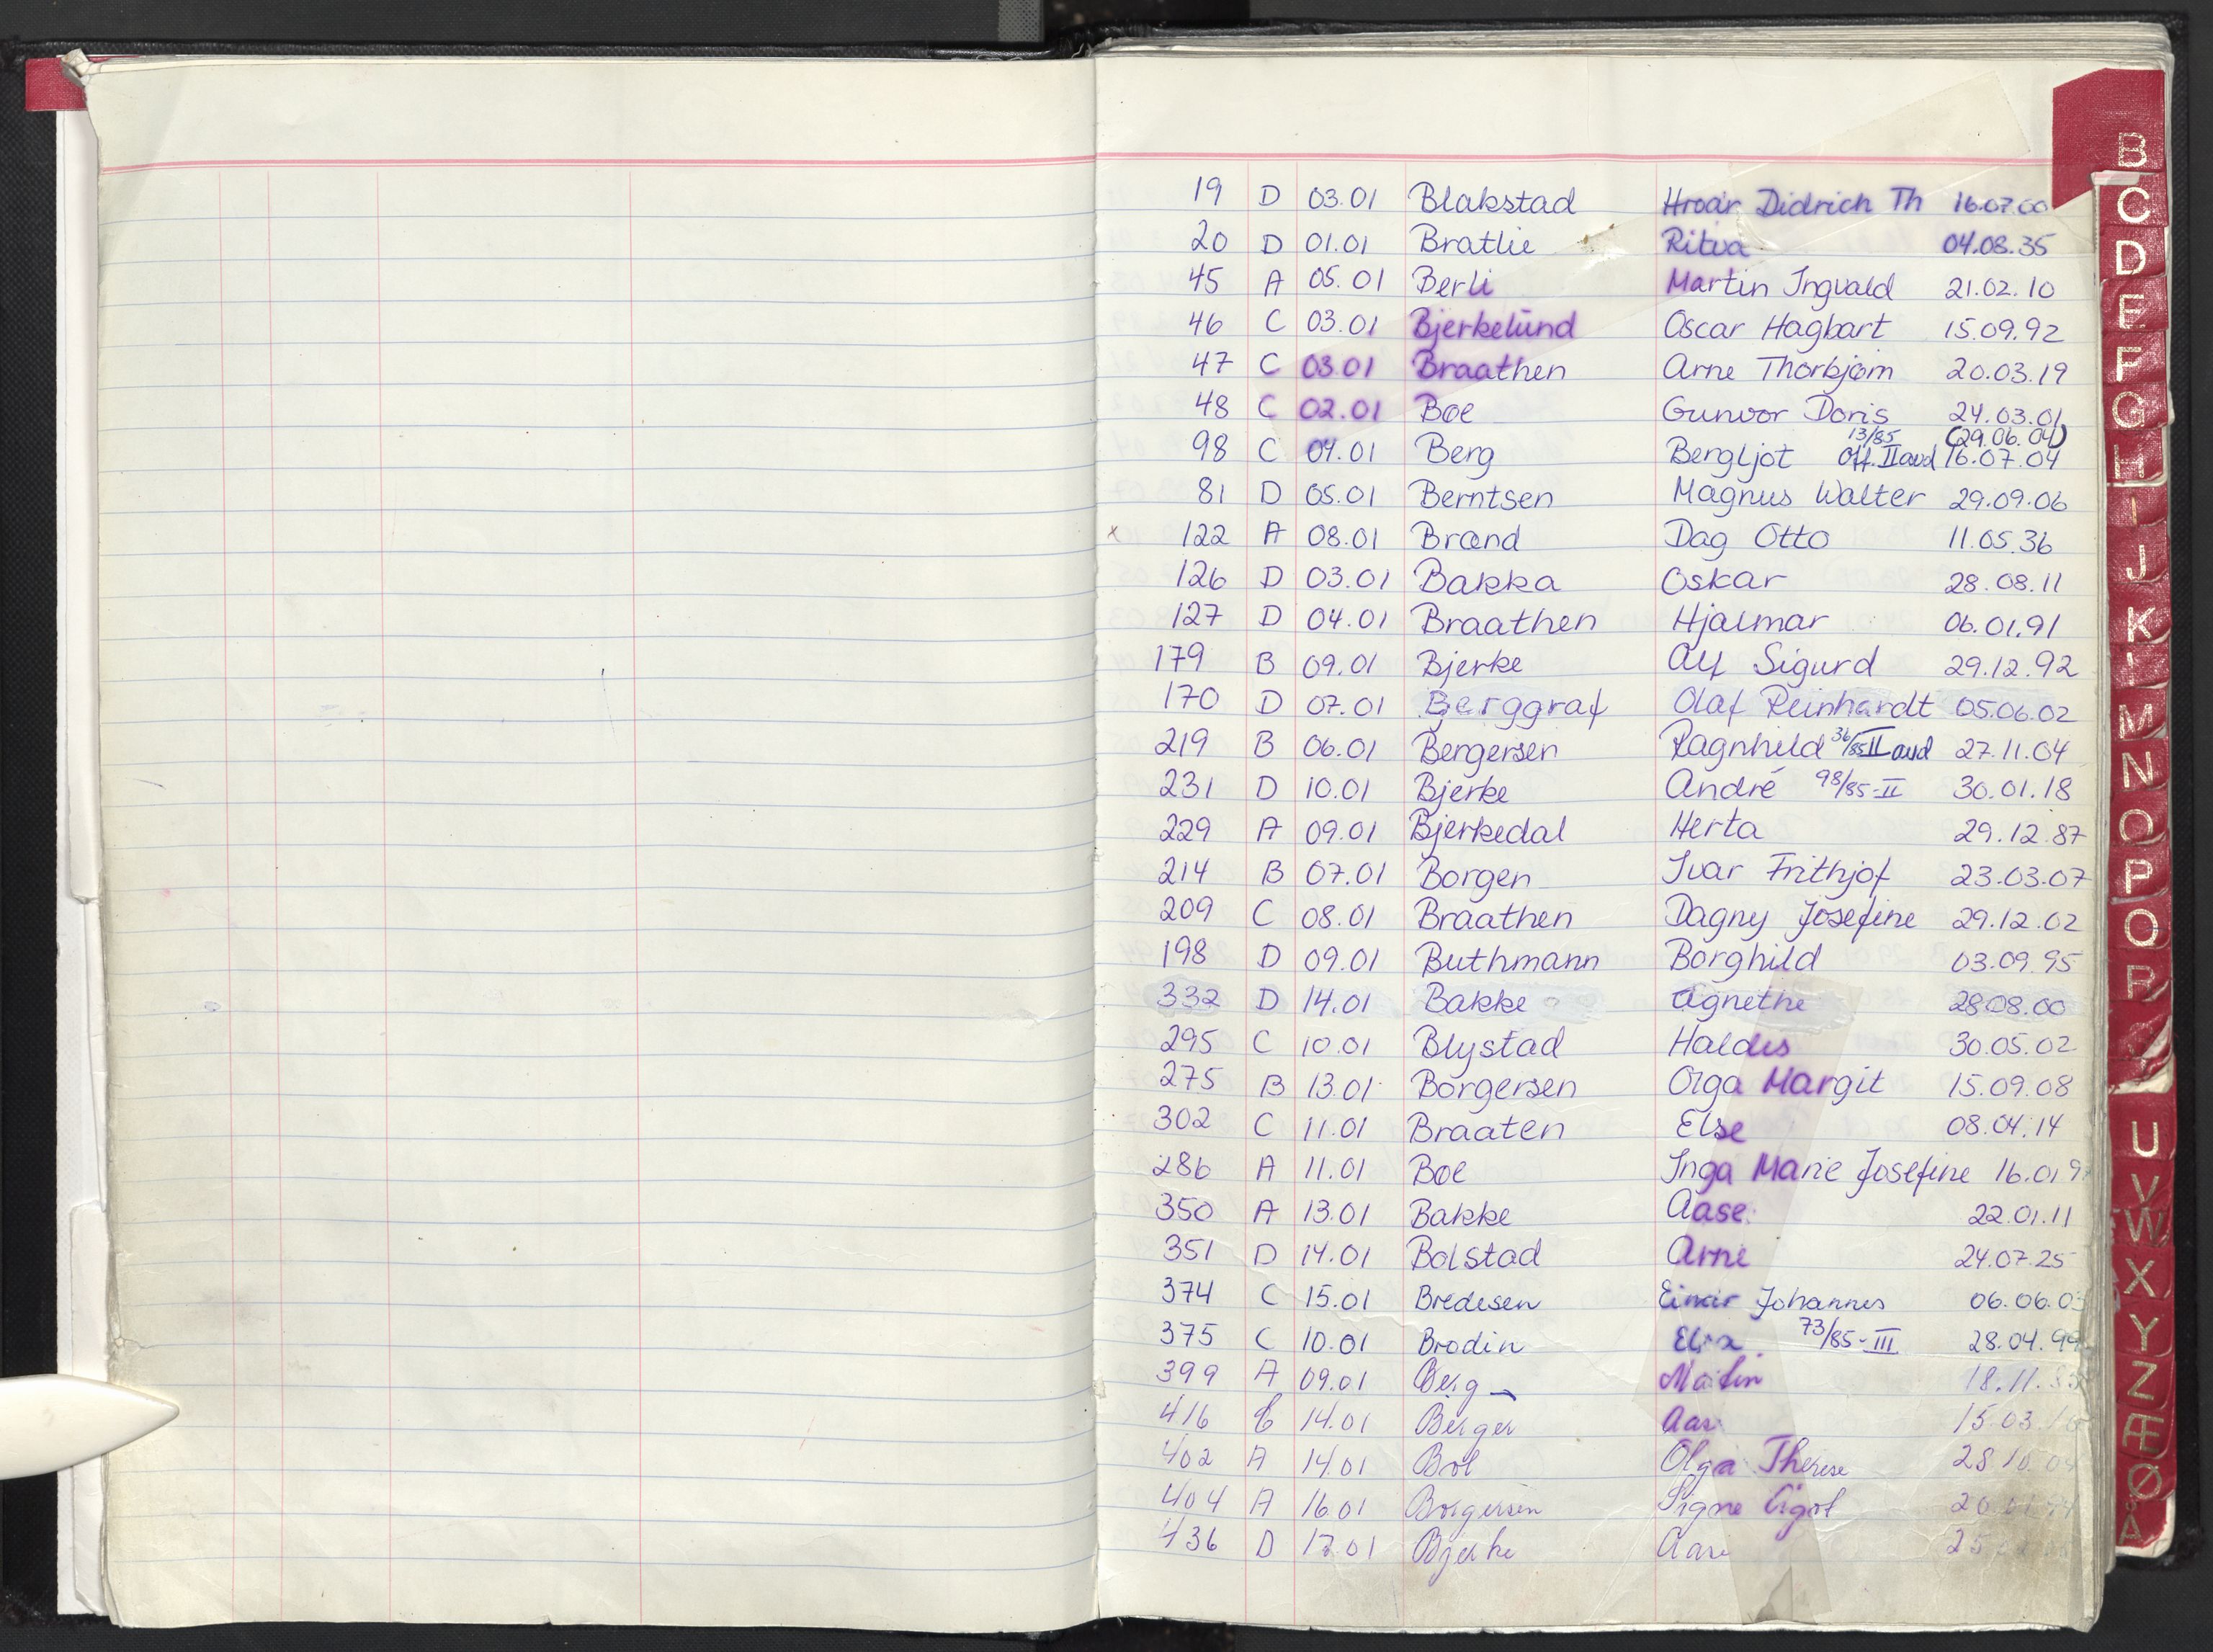 19 D 03.01 Blakstad Hroar Didrich Th 16.07.00
20 D 01.01 Bratlie Ritva 04.08.35
45 A 05.01 Berli Martin Ingvald 21.02.10
46 C 03.01 Bjerkelund Oscar Hagbart 15.09.92
47 C 03.01 Braathen Arne Thorbjørn 20.03.19
48 C 02.01 Boe Gunvor Doris 24.03.01
13/85 (29.06.04)
98 C 04.01 Berg Bergljot Off. II avd 16.07.04
81 D 05.01 Berntsen Magnus Walter 29.09.06
x 122 A 08.01 Brænd Dag Otto 11.05.36
126 D 03.01 Bakka Oskar 28.08.11
127 D 04.01 Braathen Hjalmar 06.01.91
179 B 09.01 Bjerke Alf Sigurd 29.12.92
170 D 07.01 Berggraf Olaf Reinhardt 05.06.02
219 B 06.01 Bergersen Ragnhild 36/85 II avd 27.11.04
231 D 10.01 Bjerke André 98/85-II 30.01.18
229 A 09.01 Bjerkedal Herta 29.12.87
214 B 07.01 Borgen Ivar Frithjof 23.03.07
209 C 08.01 Braathen Dagny Josefine 29.12.02
198 D 09.01 Buthmann Borghild 03.09.95
332 D 14.01 Bakke Agnethe 28.08.00
295 C 10.01 Blystad Haldis 30.05.02
275 B 13.01 Borgersen Olga Margit 15.09.08
302 C 11.01 Braaten Else 08.04.14
286 A 11.01 Boe Inga Marie Josefine
350 A 13.01 Bakke Aase 22.01.11
351 D 14.01 Bolstad Arne 24.07.25
374 C 15.01 Bredesen Einar Johannes
375 C 10.01 Brodin Elsa 73/85-III
399 A 09.01 Berg
416 14.01 Berger
402 A 14.01 Olga Therese
404 A 16.01 Borgersen Signe
436 D 17.01 Bjerke
B
C
D
E
F
G
H
I
J
K
M
N
O
P
Q
R
U
V
W
X
Y
Z
Æ
Ø
Å